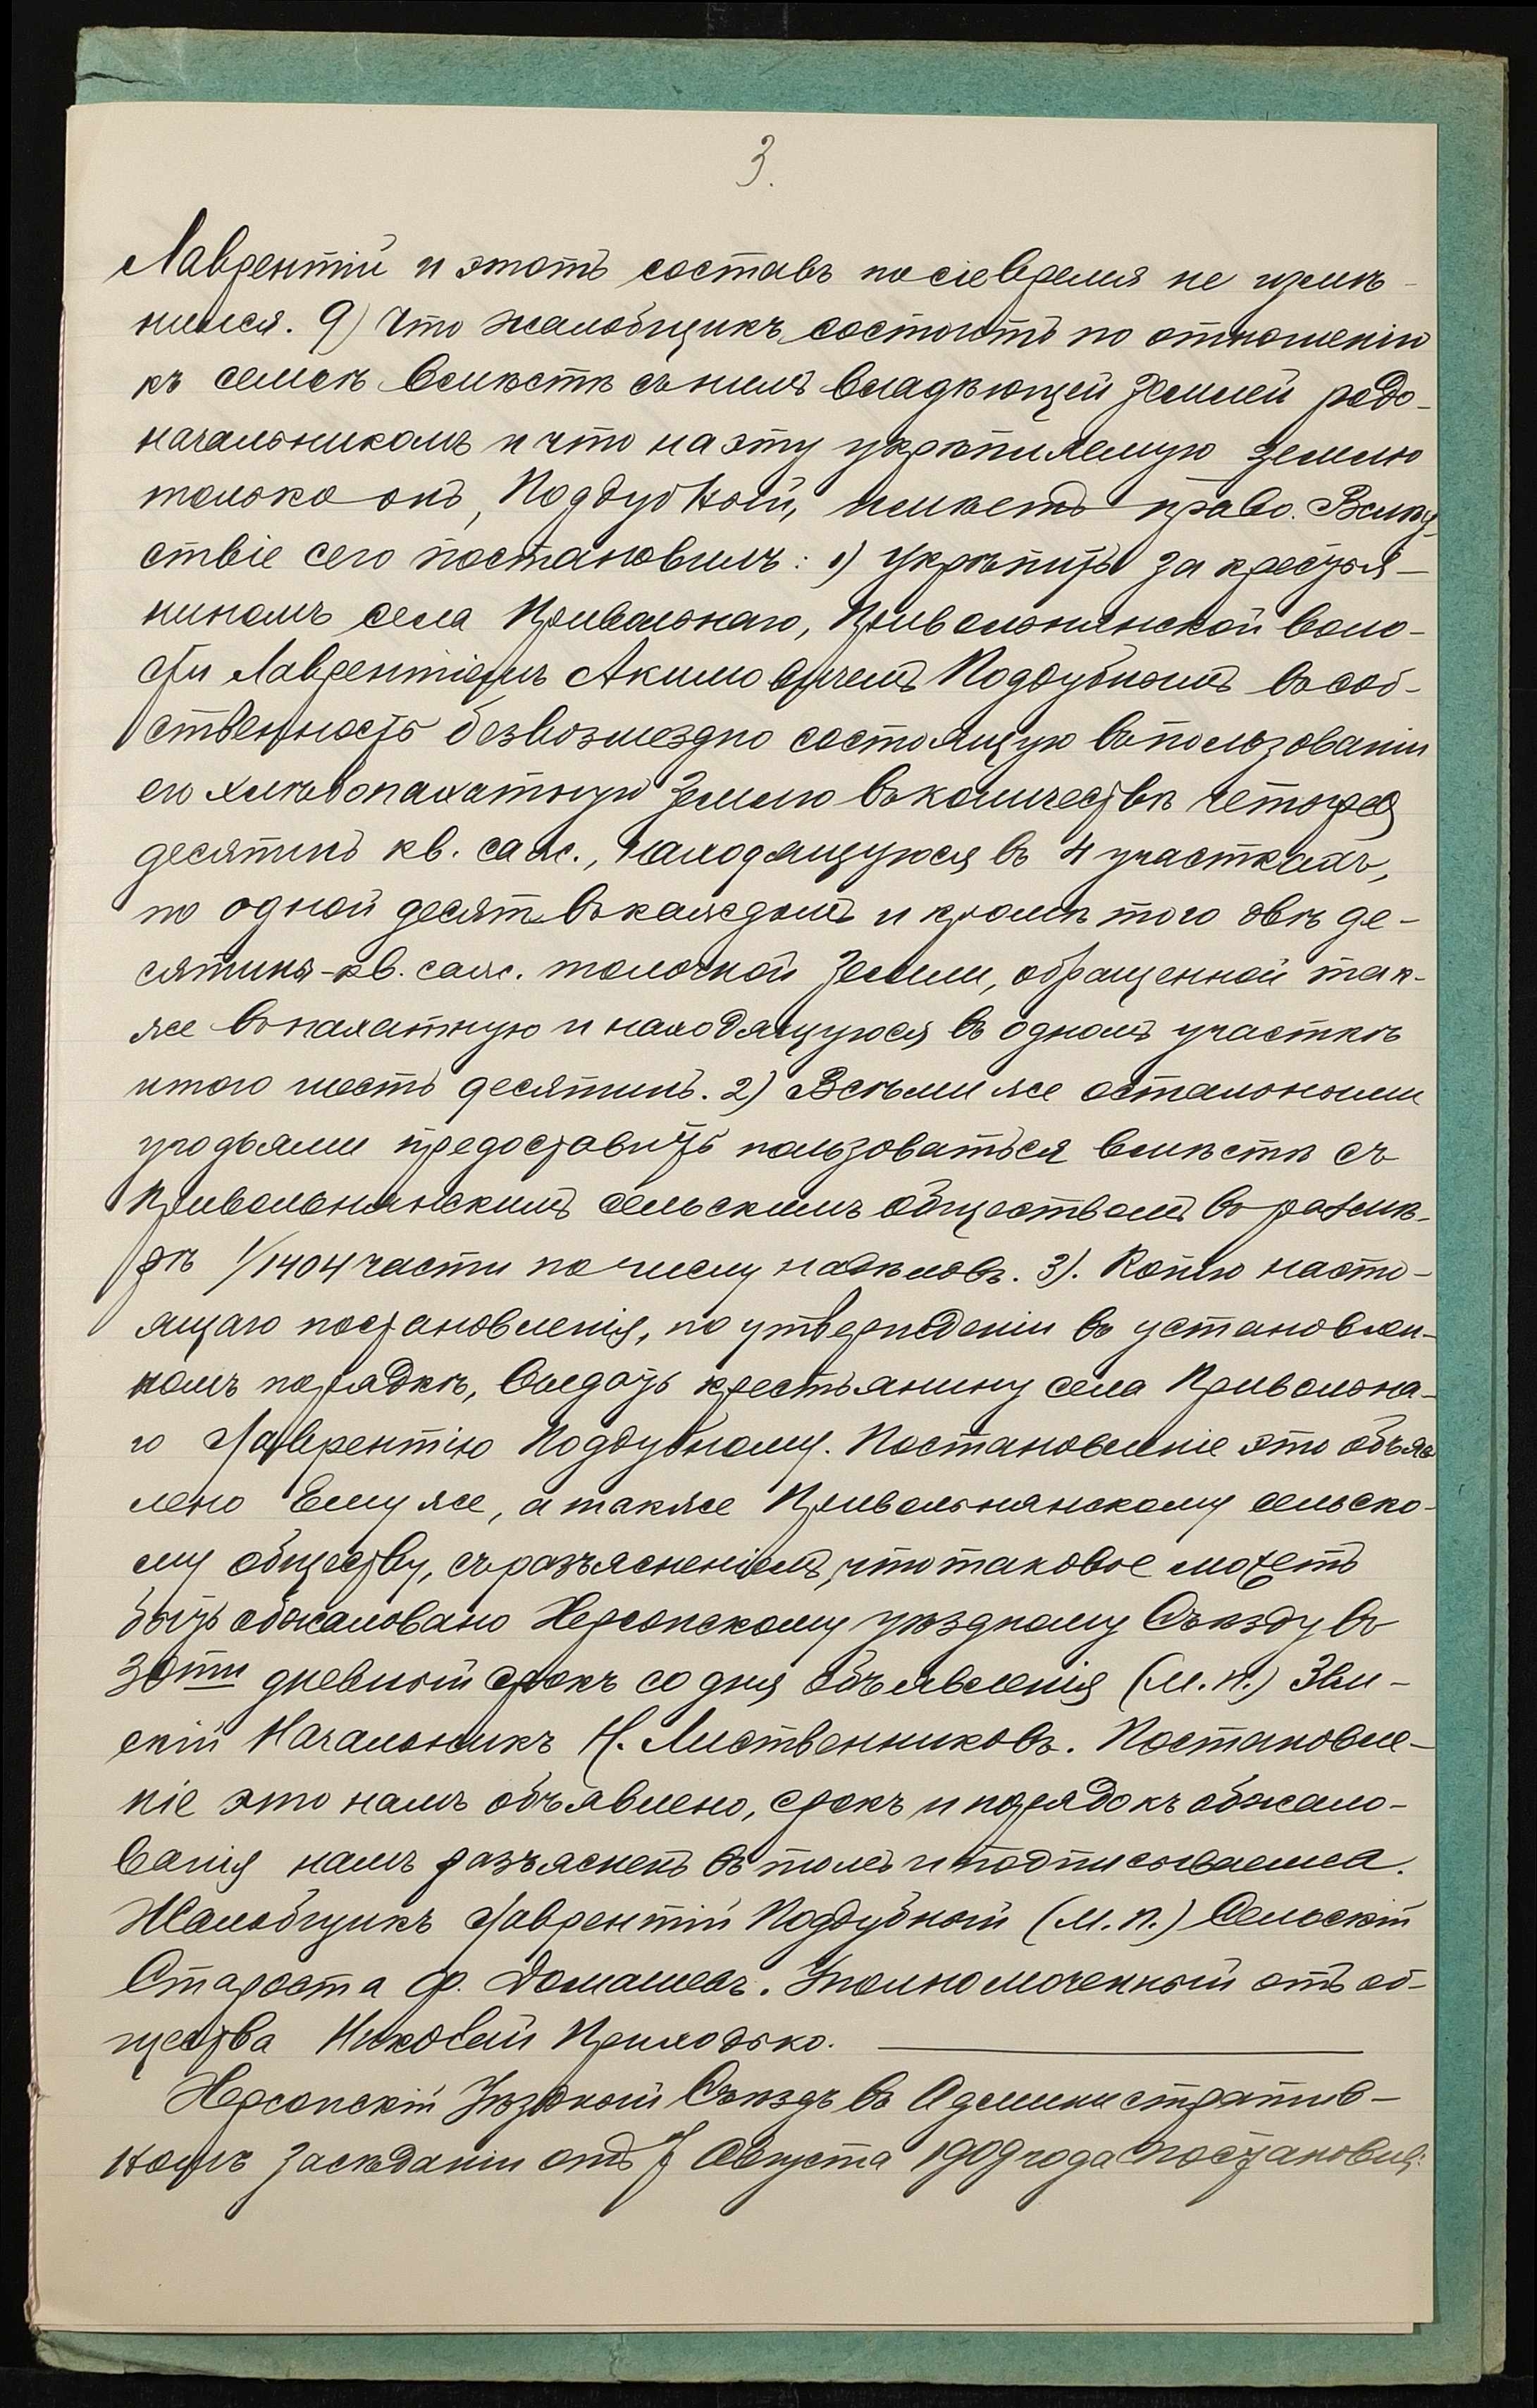 3.
Лаврентій и этотъ составъ по сіе время не измѣ-
нился. 9) Что жалобщикъ состоитъ по отношенію
къ семьѣ вмѣстѣ съ нимъ владѣющей землей родо-
начальникомъ и что на эту укрѣпляемую землю
только онъ, Поддубный, имѣетъ право. Вслѣд-
ствіе сего постановилъ: 1) Укрѣпить за крестья-
ниномъ села Привольнаго, Привольнянской воло-
сти Лаврентіемъ Акимовичемъ Поддубнымъ въ соб-
ственность безвозмездно состоящую въ пользованіи
его хлѣбопахатную землю въ количествѣ четыре
десятинъ кв. саж., находящуюся въ 4 участкахъ,
по одной десят. въ каждомъ и кромѣ того двѣ де-
сятины - кв. саж. толочной земли, обращенной так-
же въ пахатную и находящуюся въ одномъ участкѣ
итого шесть десятинъ. 2) Всѣми же остальными
угодьями предоставить пользоваться вмѣстѣ съ
Привольнянскимъ сельскимъ обществомъ въ размѣ-
рѣ 1/1404 части по числу надѣловъ. 3). Копію насто-
ящаго постановленія, по утвержденіи въ установлен-
номъ порядкѣ, выдать крестьянину села Привольна-
го Лаврентію Поддубному. Постановленіе это объяв
лено Ему же, а также Привольнянскому сельско-
му обществу, съ разъясненіемъ, что таковое можетъ
быть обжаловано Херсонскому уѣздному Съѣзду въ
30ти дневный срокъ со дня объявленія (М. П.) Зем-
скій Начальникъ Н. Лиственниковъ. Постановле-
ніе это намъ объявлено, срокъ и порядокъ обжало-
ванія намъ разъясненъ въ томъ и подписываемся.
Жалобщикъ Лаврентій Поддубный (М. П.) Сельскій
Староста Ф. Домашехъ. Уполномоченный отъ об-
щества Николай Приходько.
Херсонскій Уѣздный Съѣздъ въ Административ-
номъ Засѣданіи отъ 7 Августа 1909 года постановилъ: